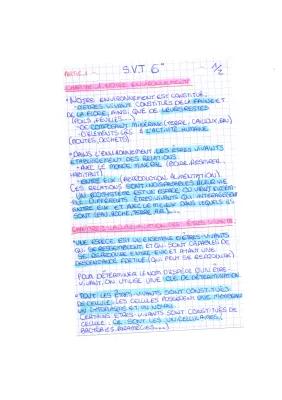 PARTIE 1 S.V.T 6e 1/2
CHAPITRE 1: NOTRE ENVIRONNEMENT
• NOTRE ENVIRONNEMENT EST CONSTITUÉ
- D'ÊTRES VIVANT CONSTITUÉS DE LA FAUNE ET
DE LA FLORE, AINSI QUE DE LEURS RESTES
(POILS, FEUILLES...)
- DE COMPOSANT MINÉRAL (TERRE, CAILLOUX, EAU)
- D'ÉLÉMENTS LIÉS À L'ACTIVITÉ HUMAINE
(ROUTES, DÉCHETS)
• DANS L'ENVIRONNEMENT, LES ÊTRES VIVANTS
ÉTABLISSENT DES RELATIONS:
- AVEC LE MONDE MINÉRAL (BOIRE, RESPIRER,
HABITAT)
- ENTRE EUX (REPRODUCTION, ALIMENTATION)
CES RELATIONS SONT INDISPENSABLES À LEUR VIE
UN ÉCOSYSTÈME EST UN ESPACE OÙ VIVENT
DIFFÉRENTS ÊTRES VIVANTS QUI INTERAGISSENT
ENTRE EUX ET AVEC LE MILIEU DANS LEQUELS ILS
SONT (EAU, ROCHE, TERRE, AIR)...
CHAPITRE 2: LA DES ÊTRES VIVANTS
• UNE ESPÈCE EST UN ENSEMBLE D'ÊTRES-VIVANTS
QUI SE RESSEMBLENT ET QUI SONT CAPABLES DE
SE REPRODUIRE ENTRE EUX ET AYANT UNE
DESCENDANCE FERTILE (QUI PEUT SE REPRODUIRE)
POUR DÉTERMINER LE NOM D'ESPÈCE D'UN ÊTRE-
VIVANT, ON UTILISE UNE CLÉ DE DÉTERMINATION
• TOUT LES ÊTRES-VIVANTS SONT CONSTITUÉS
DE CELLULE. LES CELLULES POSSÈDENT UNE MEMBRANE
UN CYTOPLASME ET UN NOYAU.
CERTAINS ÊTRES-VIVANTS SONT CONSTITUÉS DE
CELLULE: CE SONT LES UNICELLULAIRES (
BACTÉRIES, PARAMÉCIES...)